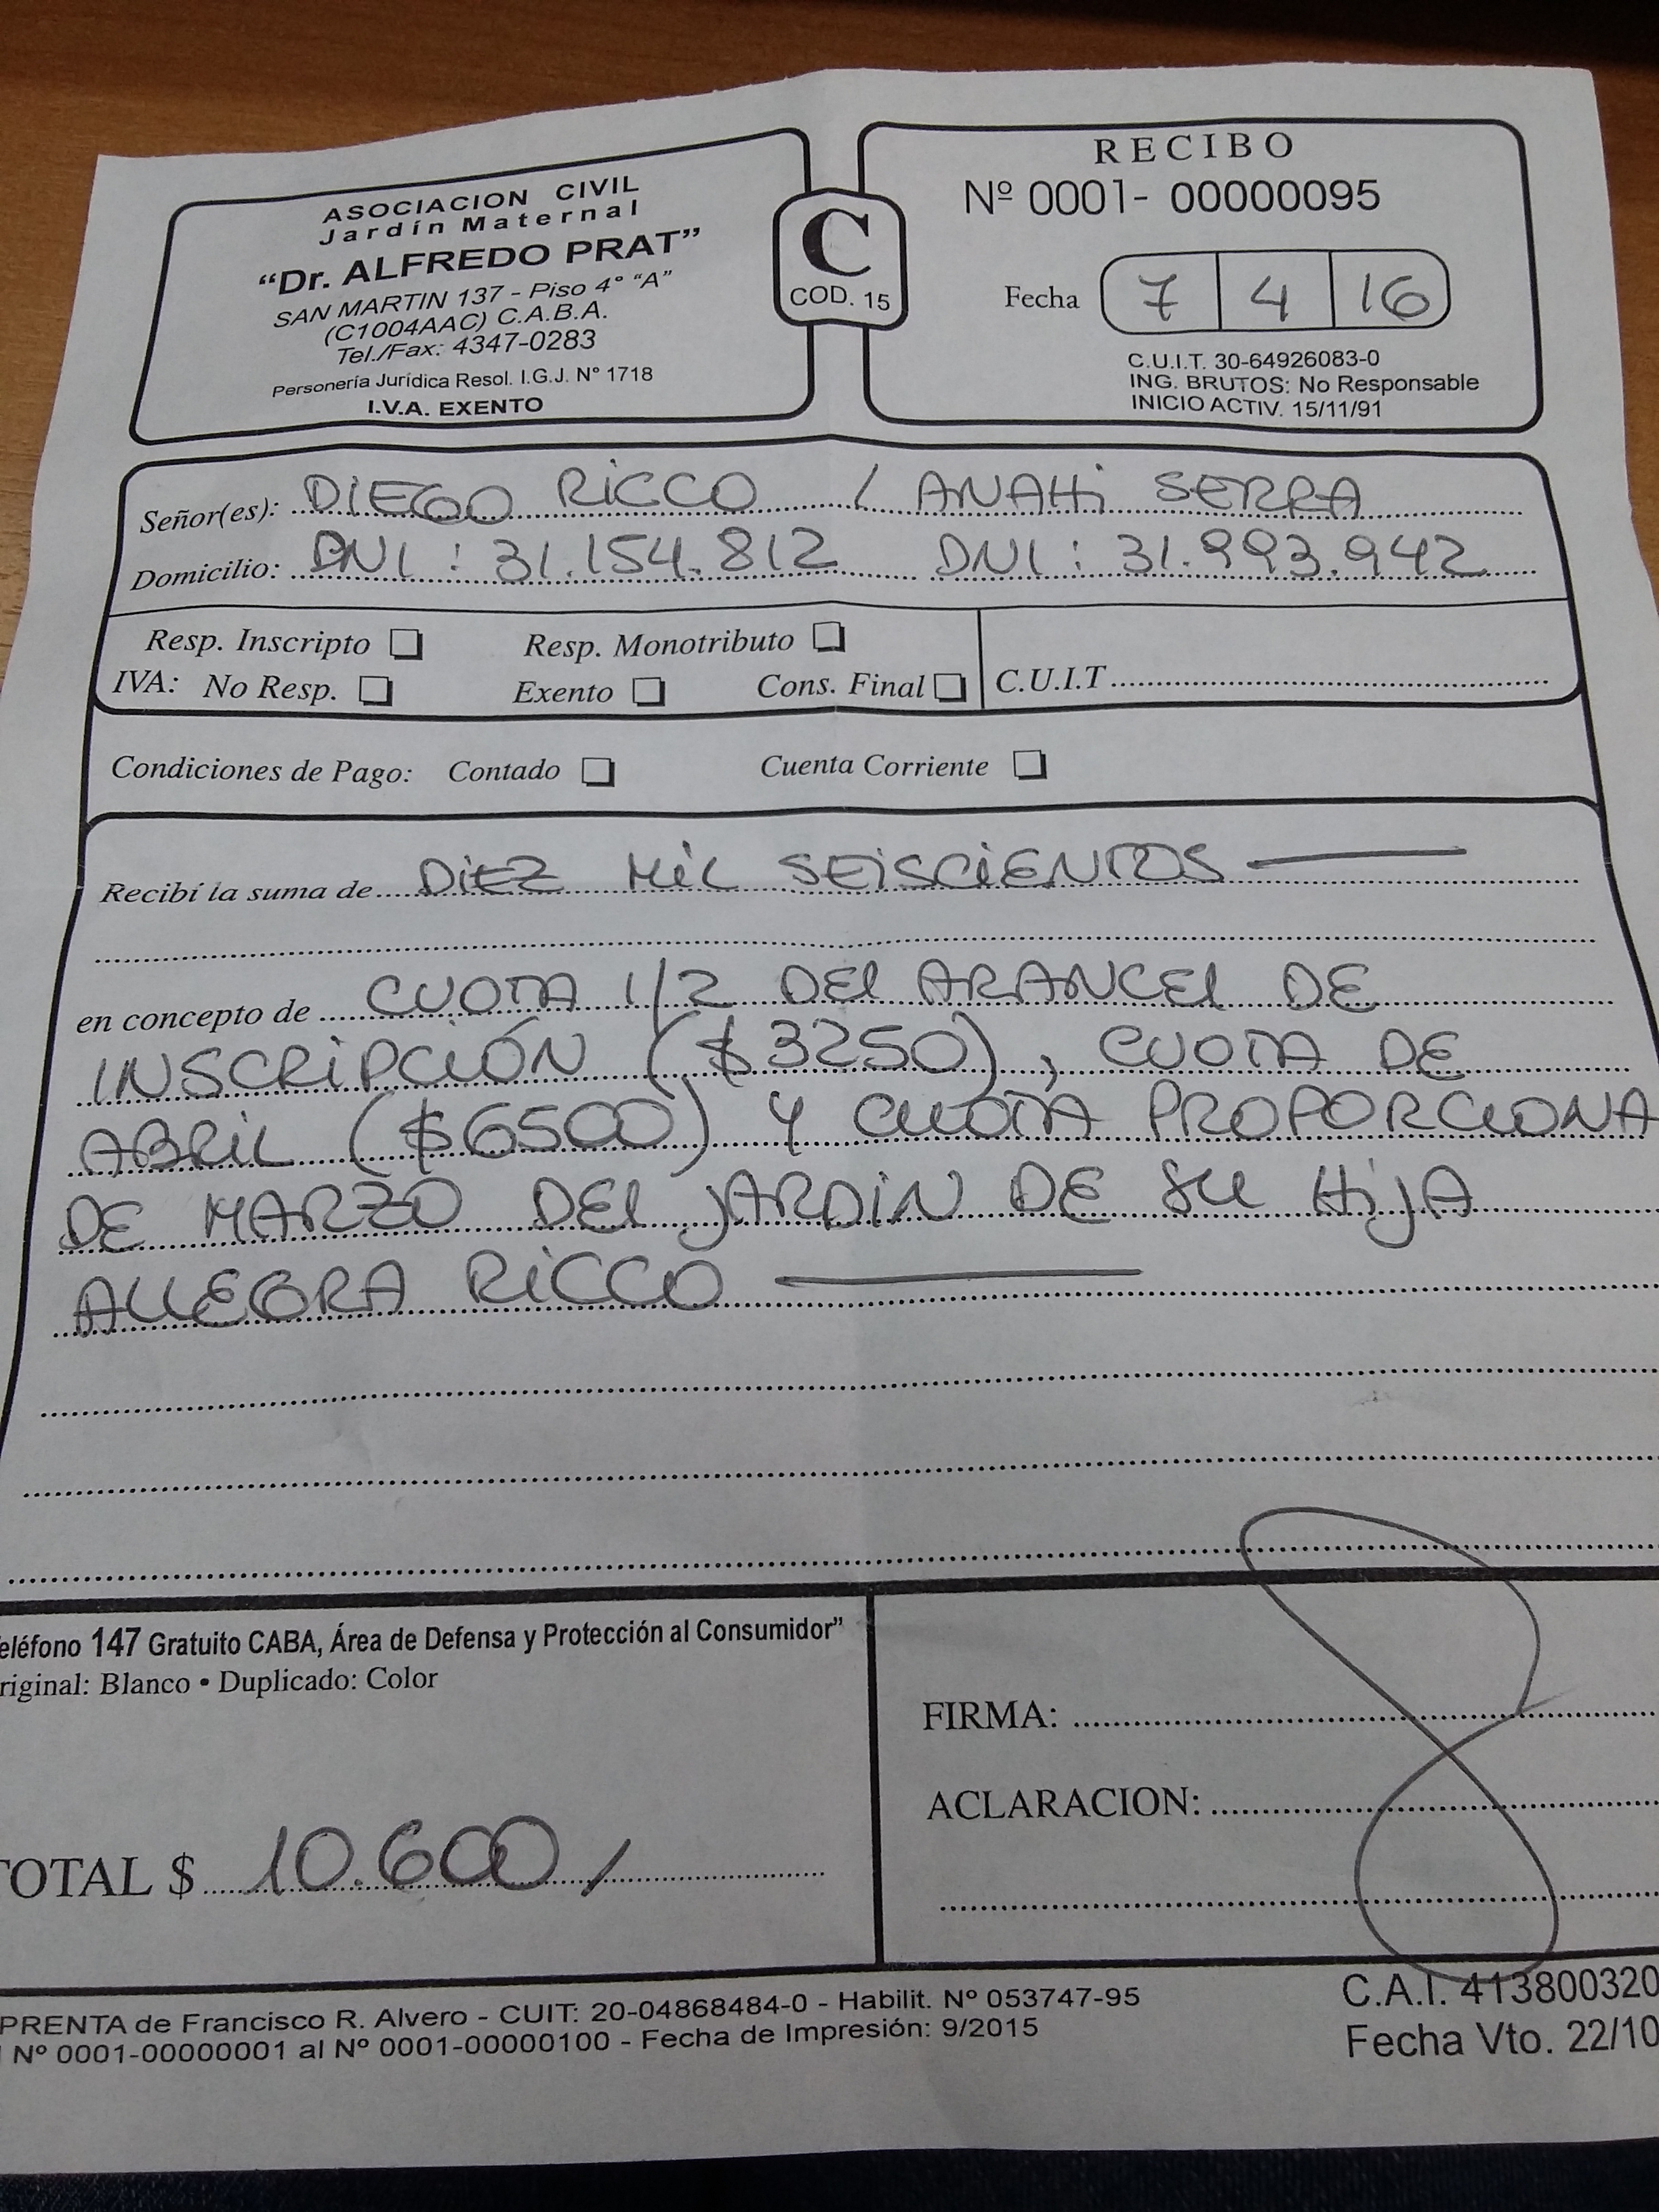 ASOCIACION CIVIL
Jardín Maternal
“Dr. ALFREDO PRAT”
SAN MARTIN 137 - Piso 4° “A”
(C1004AAC) C.A.B.A.
Tel./Fax: 4347-0283
Personería Jurídica Resol. I.G.J. N° 1718
I.V.A. EXENTO
C
COD. 15
RECIBO
Nº 0001- 00000095
Fecha 7 4 16
C.U.I.T. 30-64926083-0
ING. BRUTOS: No Responsable
INICIO ACTIV. 15/11/91
Señor(es): DIEGO RICCO / ANAHI SERRA
Domicilio: DNI : 31.154.812 DNI : 31.993.942
Resp. Inscripto Resp. Monotributo
IVA: No Resp. Exento Cons. Final C.U.I.T
Condiciones de Pago: Contado Cuenta Corriente
Recibí la suma de DIEZ MIL SEISCIENTOS
en concepto de CUOTA 1/2 DEL ARANCEL DE
INSCRIPCIÓN ($3250), CUOTA DE
ABRIL ($6500) Y CUOTA PROPORCIONA
DE MARZO DEL JARDIN DE SU HIJA
ALLEGRA RICCO
eléfono 147 Gratuito CABA, Área de Defensa y Protección al Consumidor”
riginal: Blanco • Duplicado: Color
FIRMA:
ACLARACION:
TOTAL $ 10.600
PRENTA de Francisco R. Alvero - CUIT: 20-04868484-0 - Habilit. Nº 053747-95
l Nº 0001-00000001 al Nº 0001-00000100 - Fecha de Impresión: 9/2015
C.A.I. 413800320
Fecha Vto. 22/10